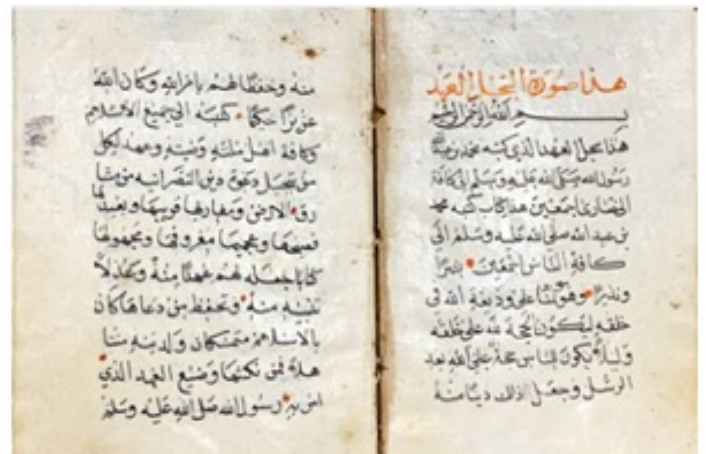 هذا صورة السجل العهد
بسم الله الرحمن الرحيم
هذا سجل العهد الذي كتبه محمد بن
رسول الله صلى الله عليه وسلم الى كافة
النصارى اجمعين هذا كتاب كتبه محمد
بن عبد الله صلى الله عليه وسلم الى
كافة الناس اجمعين بشيرا
ونذيرا وموتمنا على وديعة الله في
خلقه ليكون الحجة لله على خلقه
وليلا يكون للناس حجة على الله بعد
الرسل وجعل ذلك دينا منه
منه وحفظا لهم بامر الله وكان الله
عزيزا حكيما كتبه الى جميع الاسلام
وكافة اهل ملته وعهد لكل
من ينتحل دعوة دين النصرانيه من مشا
رق الارض ومغاربها قريبها وبعيدها
فصيحها وعجميها معروفها ومجهولها
كتابا جعله لهم عهدا منه
منه وتحفظ من دعاها كان
بالاسلام متمسكا ولدينه
هلا فمن نكثها وضيع العهد الذي
امر به رسول الله صلى الله عليه وسلم